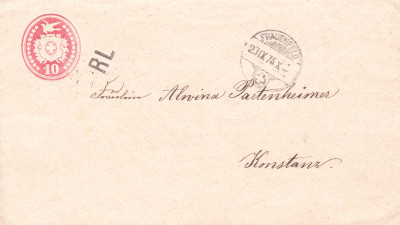 10
RL
FRAUENFELD
23 IX 74 X
Fräulein Alwina Partenheimer
Konstanz.